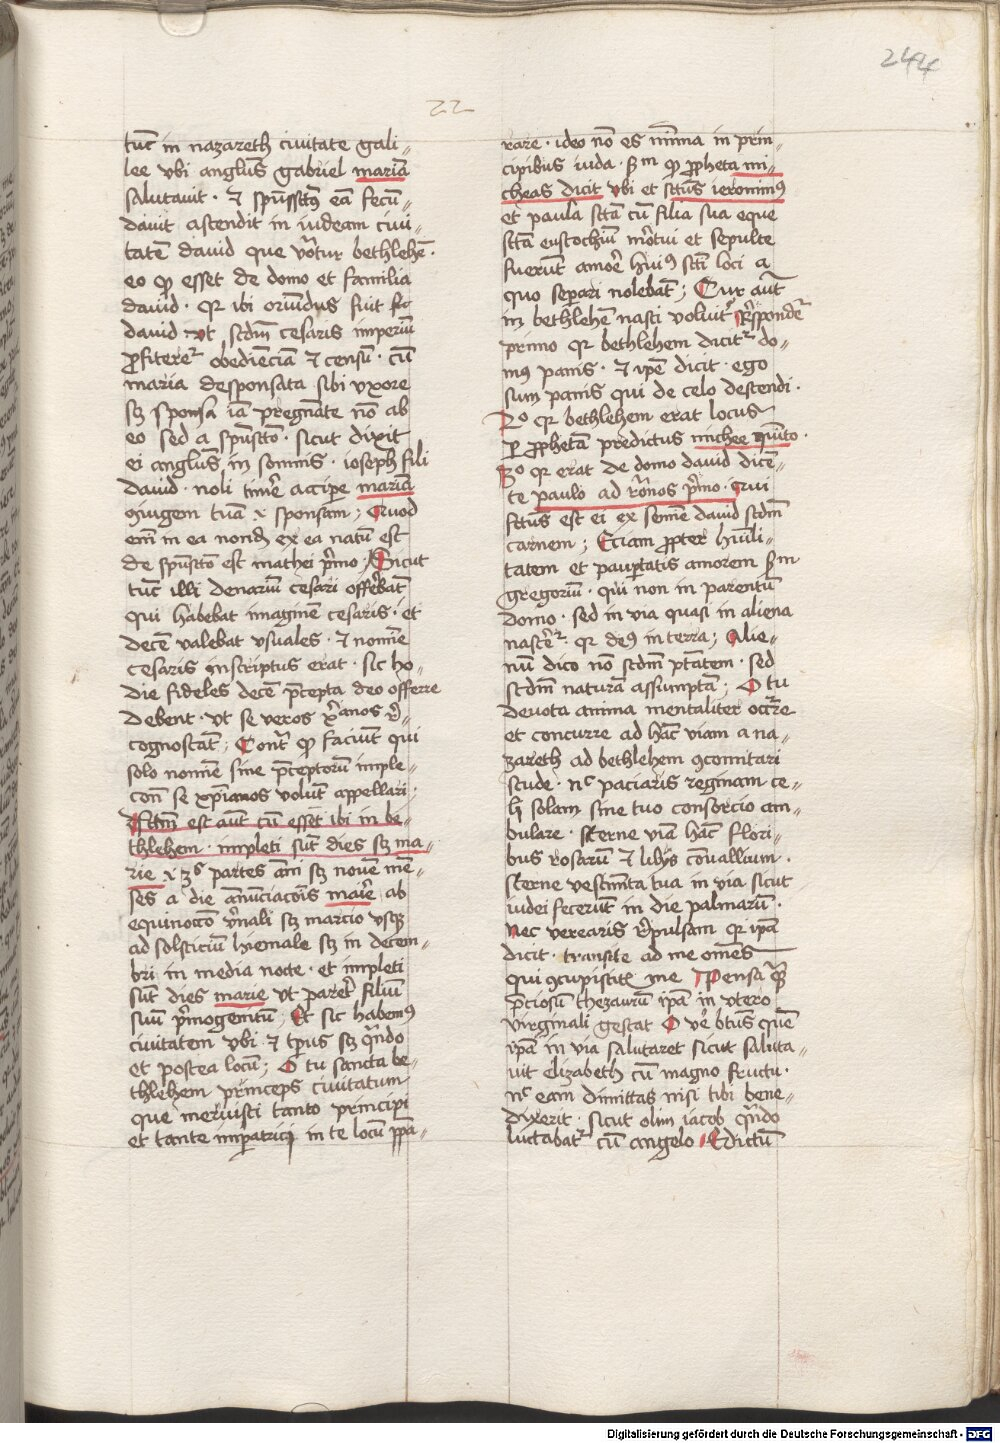 244
22
tūc in nazareth ciuitate gali„
lee vbi anglūs gabriel mariā
salutauit · ⁊ spūssctūs eā fecū„
dauit ascendit in iudeam ciui„
tatē dauid que vōtur bethlehē ·
eo qꝫ esset de domo et familia
dauid · qr ibi oriūdus fuit
dauid vt scdm̄ cesaris imperiū
ꝓfiteretʳ obediēciā ⁊ censū · cū
maria desponsata sibi vxore
sꝫ sponsa iā pregnāte nō ab
eo sed a spūsctō · sicut dixit
ei anglūs in sōmnis · ioseph fili
dauid · noli timē accipe mariā
ꝯiugem tuā ⁊ sponsam ; Quod
em̄ in ea nondꝫ ex ea natū est
de spūsctō est mathei pʳmo ; Sicut
tūc illi denariū cesari offerebāt
qui habebat imaginē cesaris · et
decē valebat vsuales · ⁊ nomē
cesaris inscriptus erat · sic ho„
die fideles decē pʳcepta deo offerre
debent · vt se veros xʳanos rͤ„
cognoscāt ; Contʳ qꝫ faciūt qui
solo nomē sine pʳceptorū imple„
con̄ se xpʳianos volūt appellari ·
Fctm̄ est aūt cū essēt ibi in be„
thlehem · impleti sūt dies sꝫ ma„
rie partes ān̄i sꝫ nouē mē„
ses a die ān̄ūciacōis maʳie ab
equinoccō vʳnali sꝫ marcio vsqꝫ
ad solsticiū hiemale sꝫ in decem„
bri in media nocte · et impleti
sūt dies marie vt pareʳt filiū
suū pʳmogenitū ; Et sic habemꝰ
ciuitatem vbi ⁊ tp̄us sꝫ qn̄do
et postea locū ; O tu sancta be„
thlehem princeps ciuitatum
que meruisti tanto principi
et tante impatrici in te locū ꝓpa„
rare · ideo nō es mīma in prin„
cipibus iuda · sm̄ qꝫ ꝓpheta mi„
cheas dicit vbi et sctūs ieronimꝰ
et paula sctā cū filia sua eque
sctā eustochiū mōtui et sepulte
fuerūt amore huiꝰ scti loci a
quo separi nolebāt ; Cur aūt
in bethlehē nasci voluitʳ Rͤspondēʳ
primo qr bethlehem dicitʳ do„
mꝰ panis · ⁊ ipē dicit · ego
sum panis qui de celo descendi ·
2º qr bethlehem erat locus
ꝑ ꝓphetā predictus michee quīto ·
3º qr erat de domo dauid dicē„
te paulo ad rōnos pʳmo · Qui
fctūs est ei ex semīe dauid scdm̄
carnem ; Eciam ꝓpter hūili„
tatem et pauptatis amorem sm̄
gregoriū · qui non in parentū
domo · sed in via quasi in aliena
nasceʳtʳ qr deꝰ in terra ; Alie„
nū dico nō scdm̄ ptātem · sed
scdm̄ naturā assumptā ; O tu
deuota anima mentaliter occʳre
et concurre ad hāc viam a na„
zareth ad bethlehem ꝯcomitari
stude · nᶜ paciaris reginam ce„
li solam sine tuo consorcio am„
bulare · sterne viā hāc flori„
bus rosarū ⁊ lilijs cōualliūm ·
sterne vestimēta tua in via sicut
iudei fecerūt in die palmarū ·
nec verearis rͤpulsam qr ipā
dicit · transite ad me omēs
qui ꝯcupistitʳ me Pensa qꝫ
pʳciosū thezaurū ipā in vtero
virginali gestat O vͤ btūs quē
ipā in via salutaret sicut saluta„
uit elizabeth cū magno fructu ·
nᶜ eam dimittas nisi tibi bene„
dixerit · sicut olim iacob qn̄do
luctabatʳ cū angelo Edictū
Digitalisierung gefördert durch die Deutsche Forschungsgemeinschaft - DFG